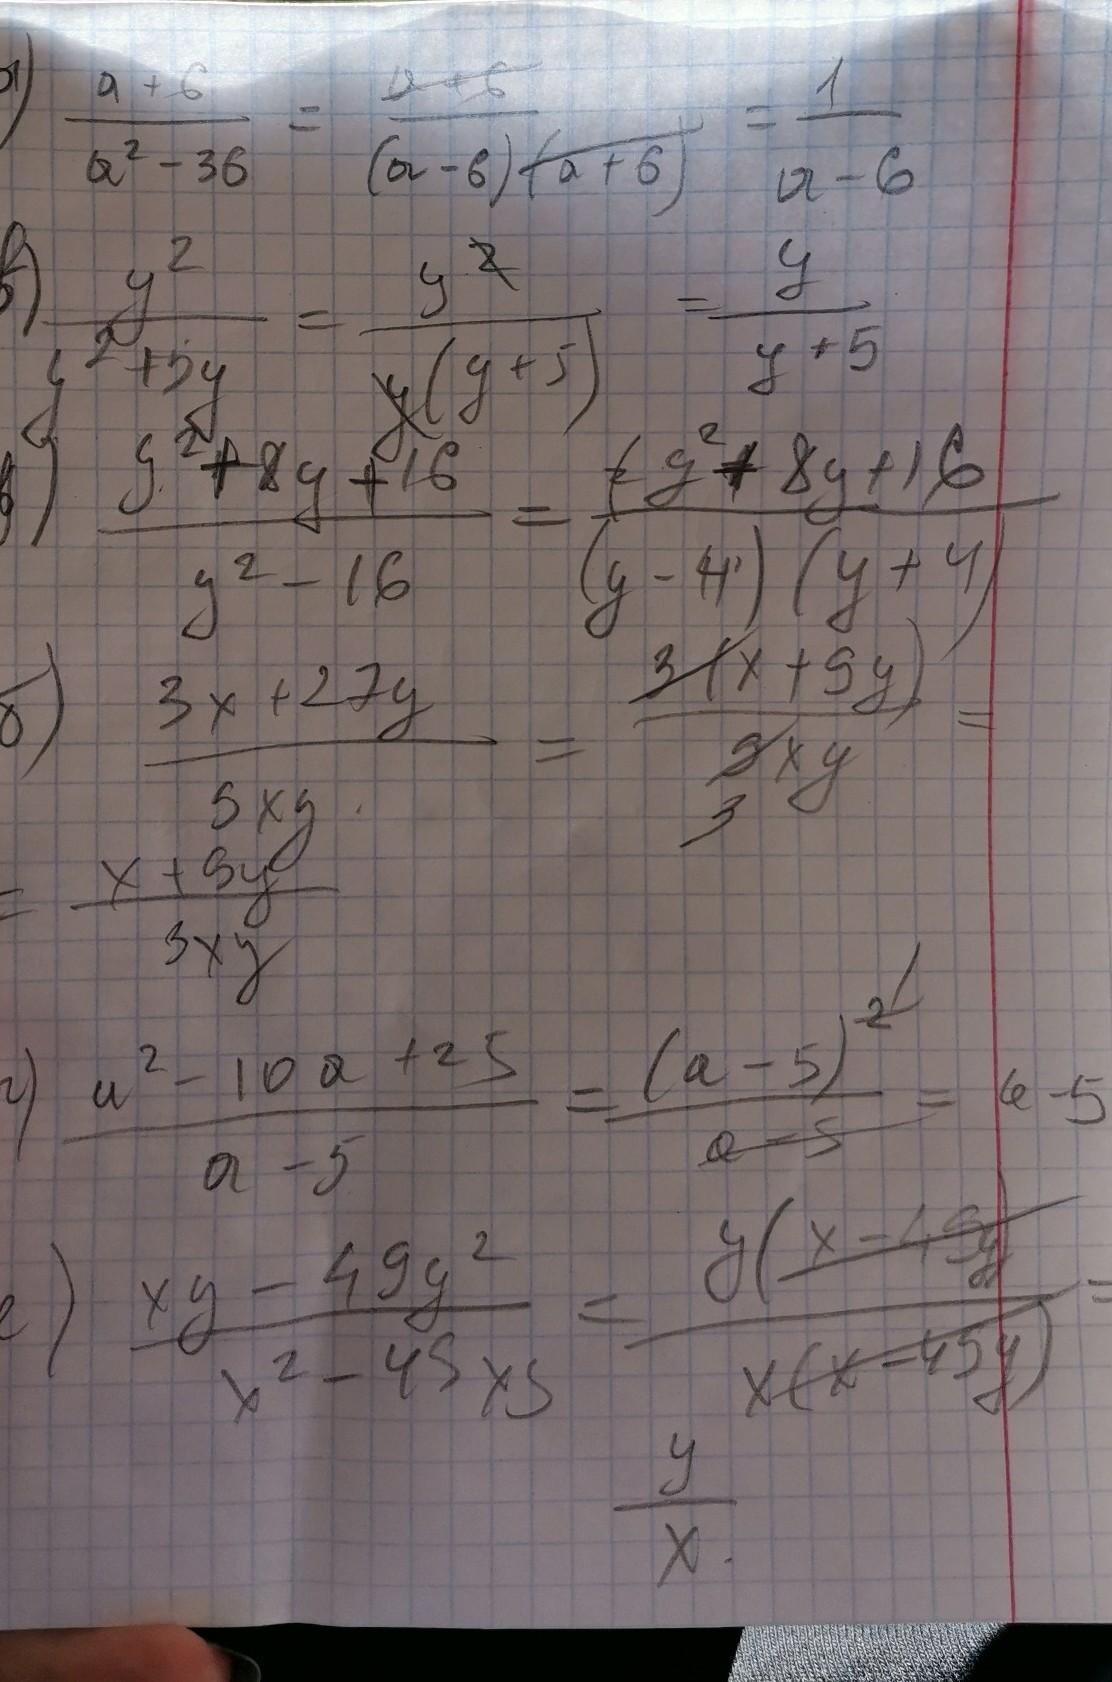 а) a + 6 / a² - 36 = a + 6 / (a - 6)(a + 6) = 1 / a - 6
y² / y² + 5y = y² / y(y + 5) = y / y + 5
y² + 8y + 16 / y² - 16 = y² + 8y + 16 / (y - 4)(y + 4)
б) 3x + 27y / 9xy = 3(x + 9y) / 9xy =
3
= x + 9y / 3xy
г) a² - 10a + 25 / a - 5 = (a - 5)² / a - 5 = a - 5
е) xy - 49y² / x² - 49xy = y(x - 49y) / x(x - 49y) =
y / x